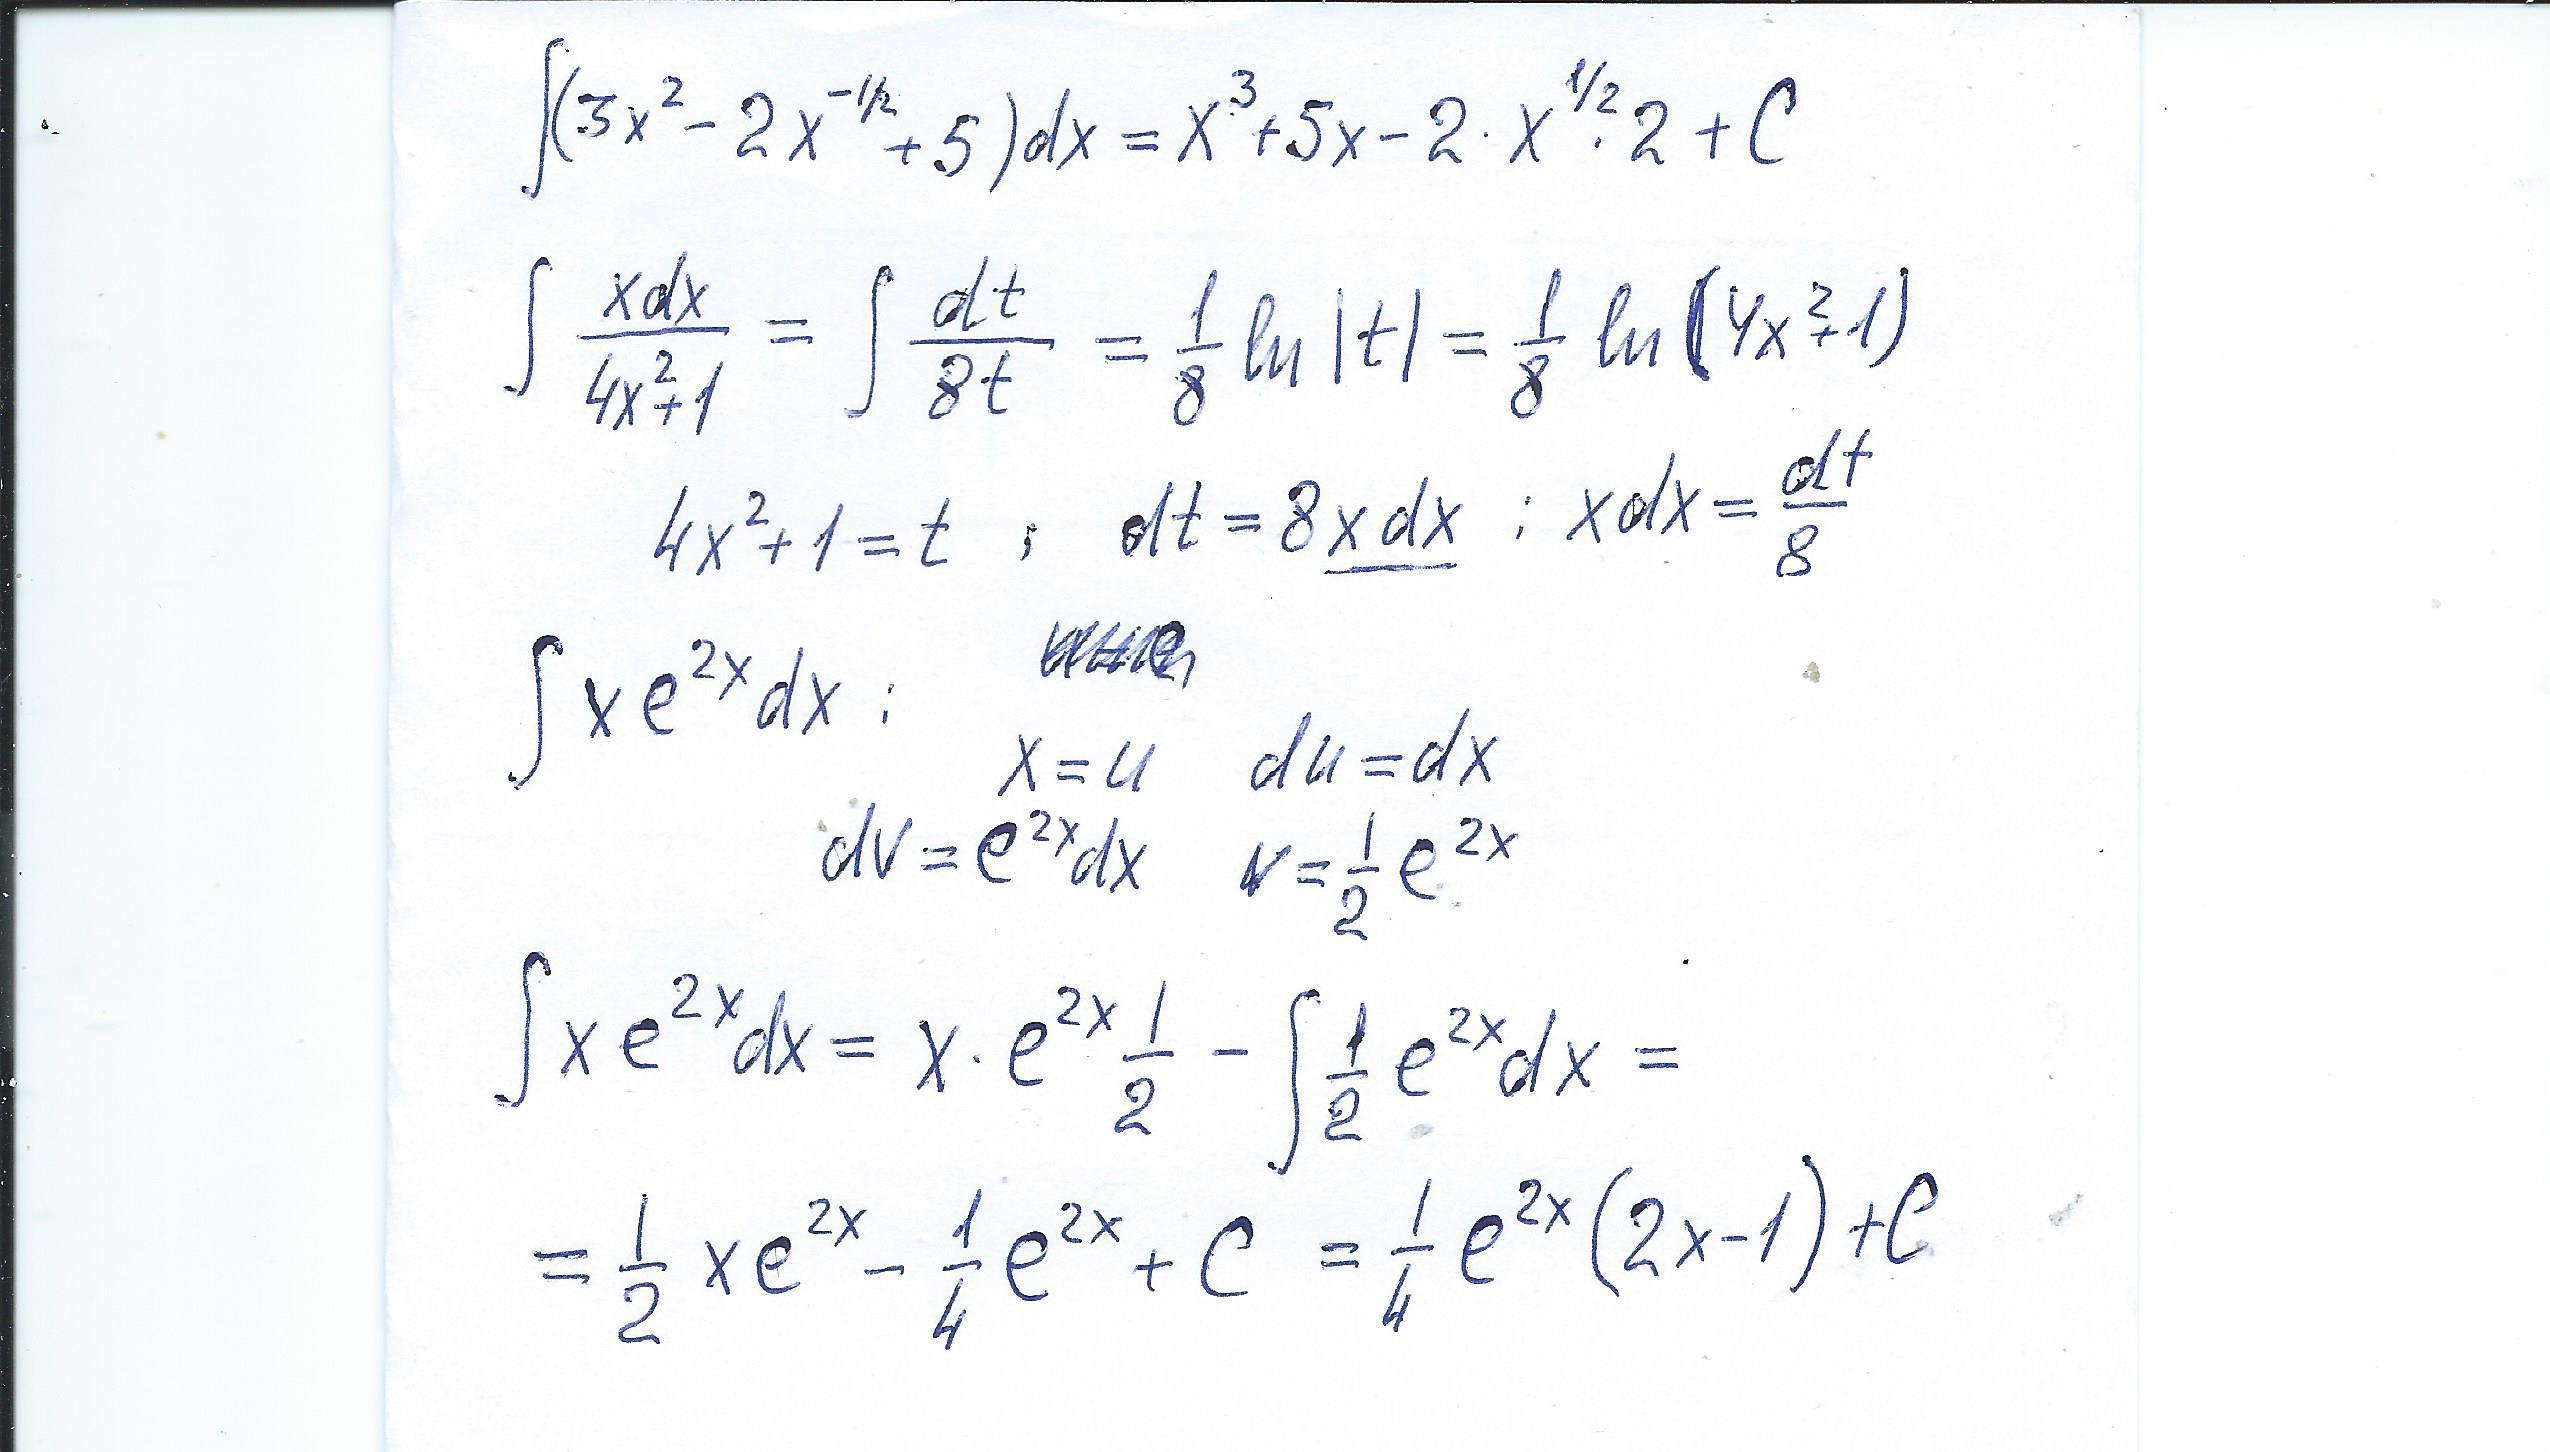 ∫(3x² - 2x^(-1/2) + 5)dx = x³ + 5x - 2 · x^(1/2) · 2 + C
∫ xdx/(4x²+1) = ∫ dt/(8t) = 1/8 ln|t| = 1/8 ln(4x²+1)
4x²+1 = t ; dt = 8xdx ; xdx = dt/8
∫ x e^(2x) dx :
x = u du = dx
dv = e^(2x) dx v = 1/2 e^(2x)
∫ x e^(2x) dx = x · e^(2x) 1/2 - ∫ 1/2 e^(2x) dx =
= 1/2 x e^(2x) - 1/4 e^(2x) + C = 1/4 e^(2x) (2x-1) + C